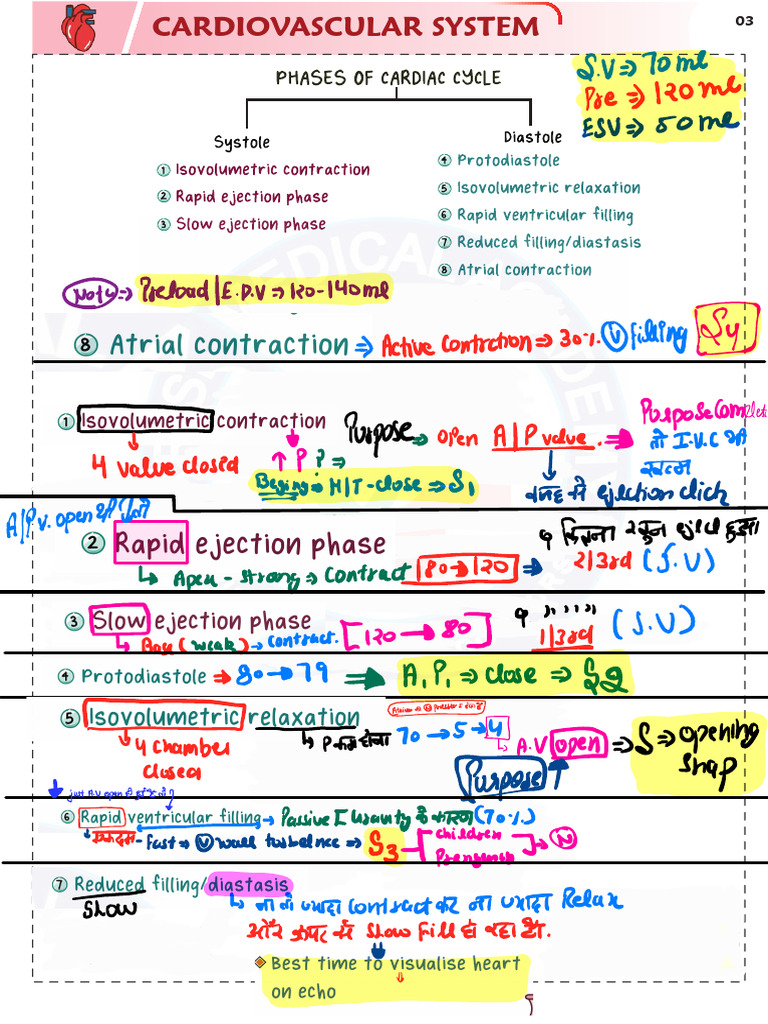 CARDIOVASCULAR SYSTEM
03
PHASES OF CARDIAC CYCLE
S.V ⇒ 70 ml
Pre ⇒ 120 ml
ESV ⇒ 50 ml
Systole
① Isovolumetric contraction
② Rapid ejection phase
③ Slow ejection phase
Diastole
④ Protodiastole
⑤ Isovolumetric relaxation
⑥ Rapid ventricular filling
⑦ Reduced filling/diastasis
⑧ Atrial contraction
Note ⇒ Preload | E.D.V ⇒ 120-140 ml
⑧ Atrial contraction ⇒ Active Contrction ⇒ 30% Ⓥ filling S4
① Isovolumetric contraction Purpose ⇒ open A|P value. ⇒ Purpose Complete
4 value closed ↑ P ? ⇒ तो I.V.C भी
Beging ⇒ M|T-close ⇒ S1 ejection click खत्म
A|P v. open
② Rapid ejection phase
Apex - strong ⇒ Contract 80 → 120 ⇒ 2|3rd (S.V)
③ Slow ejection phase
Base (weak) → contract. [120 → 80] 1|3rd (S.V)
④ Protodiastole ⇒ 80 → 79 ⇒ A, P, ⇒ close ⇒ S2
⑤ Isovolumetric relaxation
4 chamber 70 → 5 → 4
closed A.V open ⇒ S ⇒ opening
Purpose ↑ snap
just A.V open
⑥ Rapid ventricular filling → Passive के कारण (70%)
Fast ⇒ Ⓥ wall turbelnce ⇒ S3 children
Prengency Ⓝ
⑦ Reduced filling/diastasis
Slow ना तो ज्यादा Contract कर ना ज्यादा Relax
और ऊपर से Slow Fill हो रहा है.
❖ Best time to visualise heart
on echo